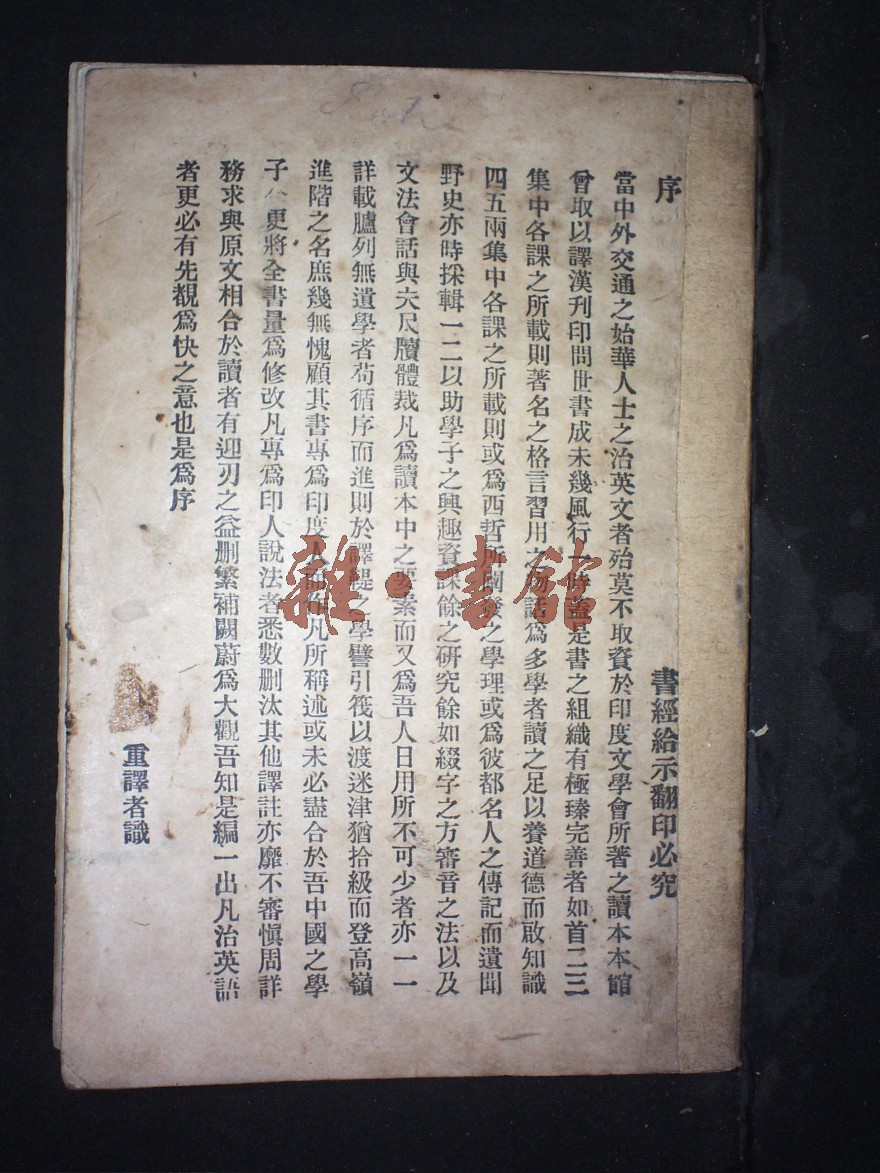 序
書經給示翻印必究
當中外交通之始華人士之治英文者殆莫不取資於印度文學會所著之讀本本館
曾取以譯漢刊印問世書成未幾風行一時蓋是書之組織有極臻完善者如首二三
集中各課之所載則著名之格言習用之物話為多學者讀之足以養道德而啟知識
四五兩集中各課之所載則或為西哲所闡發之學理或為彼都名人之傳記而遺聞
野史亦時採輯一二以助學子之興趣資課餘之研究餘如綴字之方審音之法以及
文法會話與夫尺牘體裁凡為讀本中之要素而又為吾人日用所不可少者亦一一
詳載臚列無遺學者苟循序而進則於譯鞮之學譬引筏以渡迷津猶拾級而登高嶺
進階之名庶幾無愧顧其書專為印度人而作凡所稱述或未必盡合於吾中國之學
子 更將全書量為修改凡專為印人說法者悉數删汰其他譯註亦靡不審慎周詳
務求與原文相合於讀者有迎刃之益删繁補闕蔚為大觀吾知是編一出凡治英語
者更必有先覩為快之意也是為序
重譯者識
雜·書館